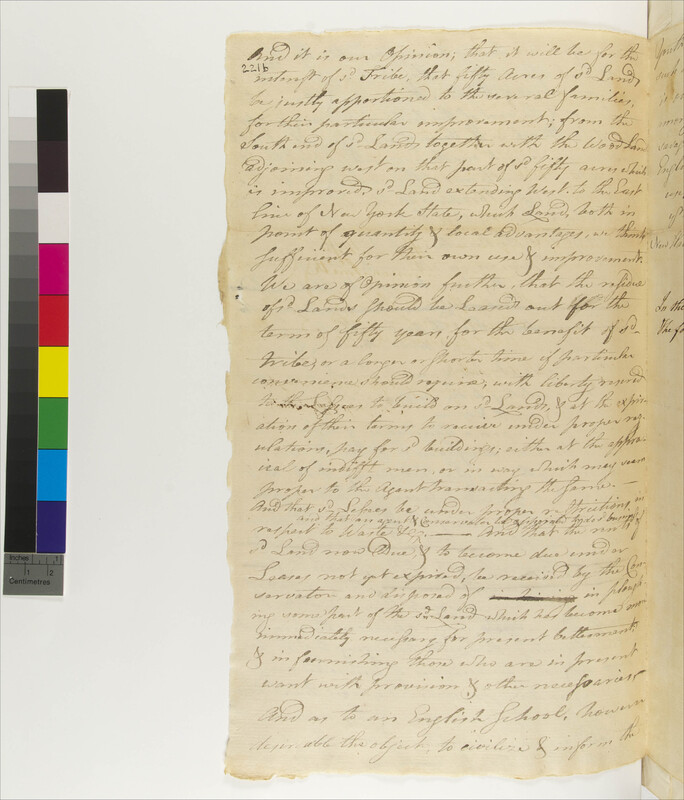 And it is our Opinion; that it will be for the
221b
interest of sd. Tribe, that fifty Acres of sd. Land,
be justly apportioned to the several families,
for their particular improvement; from the
South end of sd. Land together with the Wood Land
adjoining west on that part of sd. fifty acres which
is improved, sd. Land extending West to the East
line of New York State, which Land, both in
point of quantity & local advantages, we think
sufficient for their own use & improvement.
We are of Opinion further, that the residue
of sd. Lands should be Leased out for the
term of fifty years for the benefit of sd.
tribe, or a longer or shorter time if particular
convenience should require, with liberty
to the Lessees to build on sd. Lands, & at the expir
ation of their terms to receive under proper reg
ulations, pay for sd. buildings; either at the appra
isal of indifft men, or in way which may seem
proper to the Agent transacting the same. —
And that sd. Lesses be under proper restrictions, in
and that an agent & Conservator be appointed
respect to Waste &c. — And that the rents of
sd. Land now due, & to become due under
Leases not yet expired, be received by the Con
servator and disposed of in plough
ing some part of the sd. Land which has become
immediately necessary for present betterment,
& in furnishing those who are in present
want with provision & other necessaries
And as to an English School, however
desirable the object, to civilize & inform the